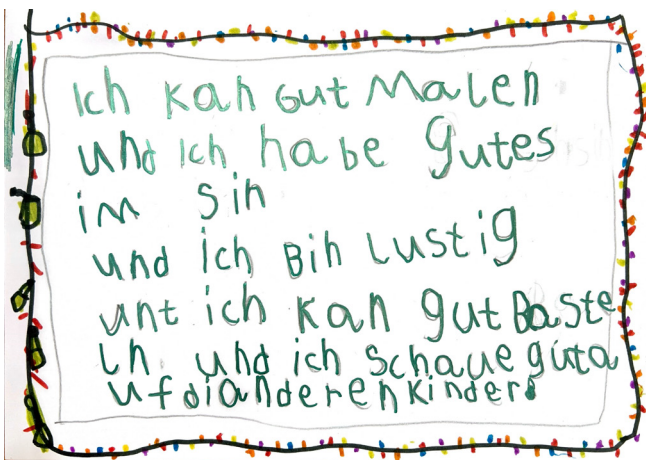 Ich kan gut Malen
und ich habe gutes
im sin
und ich Bin Lustig
unt ich kan gut Baste
ln und ich schaue guta
uf di anderen kinder.